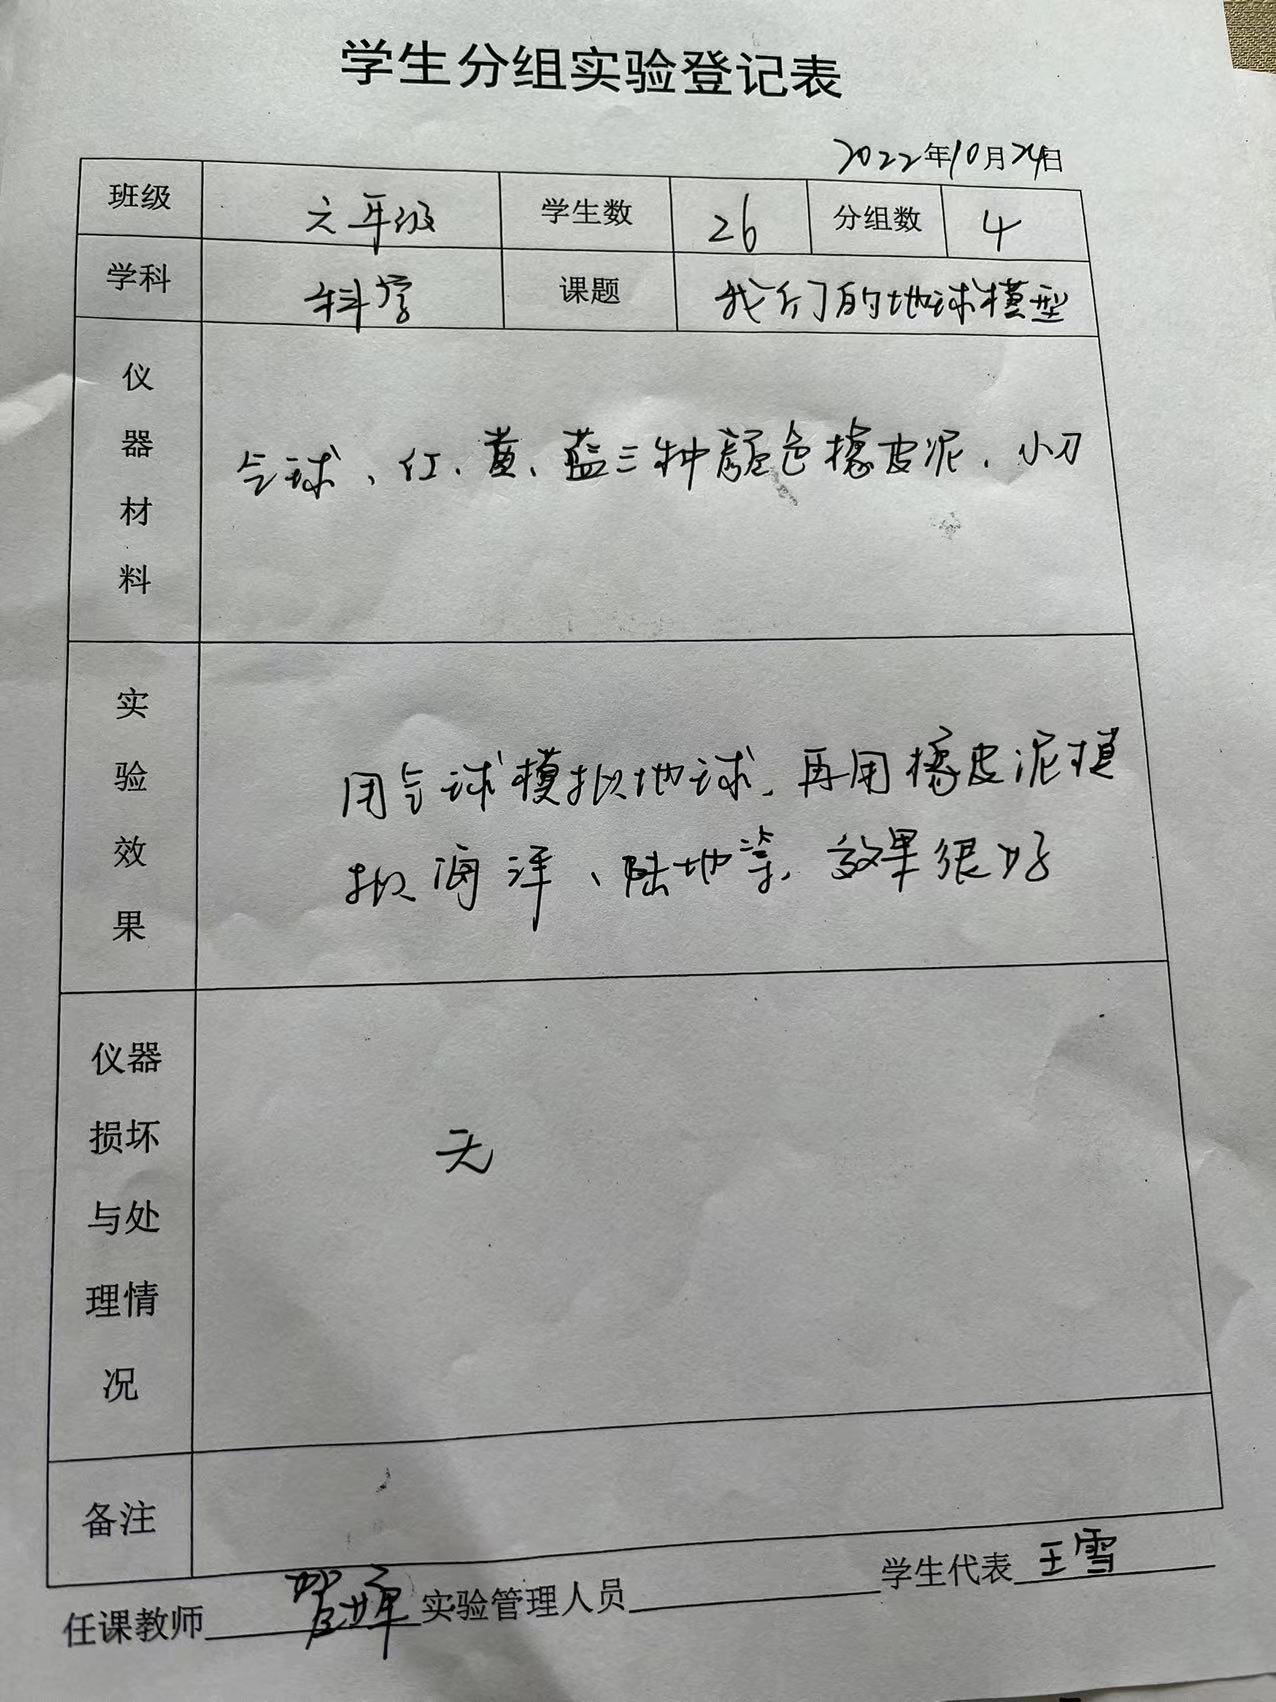 学生分组实验登记表
2022年10月24日
班级 六年级 学生数 26 分组数 4
学科 科学 课题 我们的地球模型
仪器材料 气球、红、黄、蓝三种颜色橡皮泥、小刀
实验效果 用气球模拟地球,再用橡皮泥模
拟海洋、陆地等,效果很好
仪器损坏与处理情况 无
备注
任课教师 贺 实验管理人员 学生代表 王雪